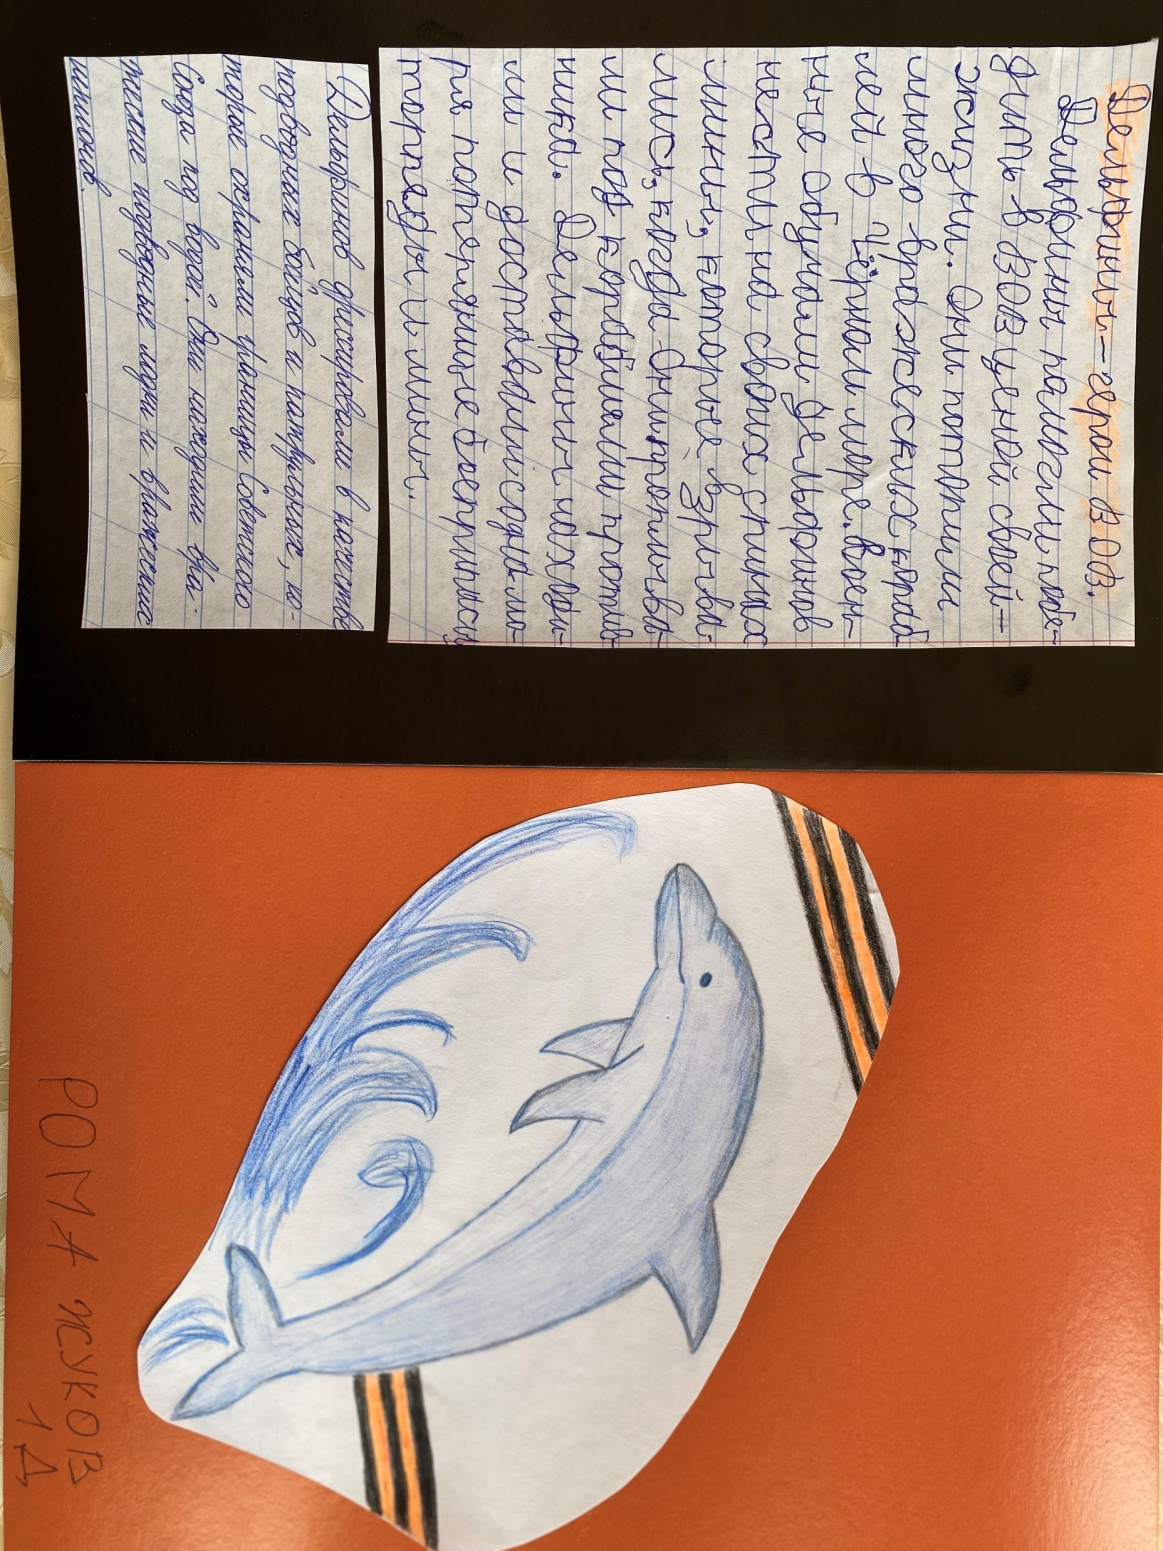 Дельфины – герои ВОВ.
Дельфины помогли побе-
дить в ВОВ ценой своей
жизни. Они потопили
много вражеских кораб
лей в Чёрном море. Воен-
ные обучали дельфинов
нести на своих спинах
мины, которые взрыва-
лись, когда они проплыва
ли под кораблями против
ника. Дельфины находи-
ли и доставляли сапёрам
потерянные боеприпасы
торпеды и мины.
Дельфинов дрессировали в качестве
подводных бойцов и патрульных, ко-
торые охраняли границы Советского
Союза под водой. Они находили вра-
жеские подводные лодки и вражеских
шпионов.
РОМА ЖУКОВ
1 Д